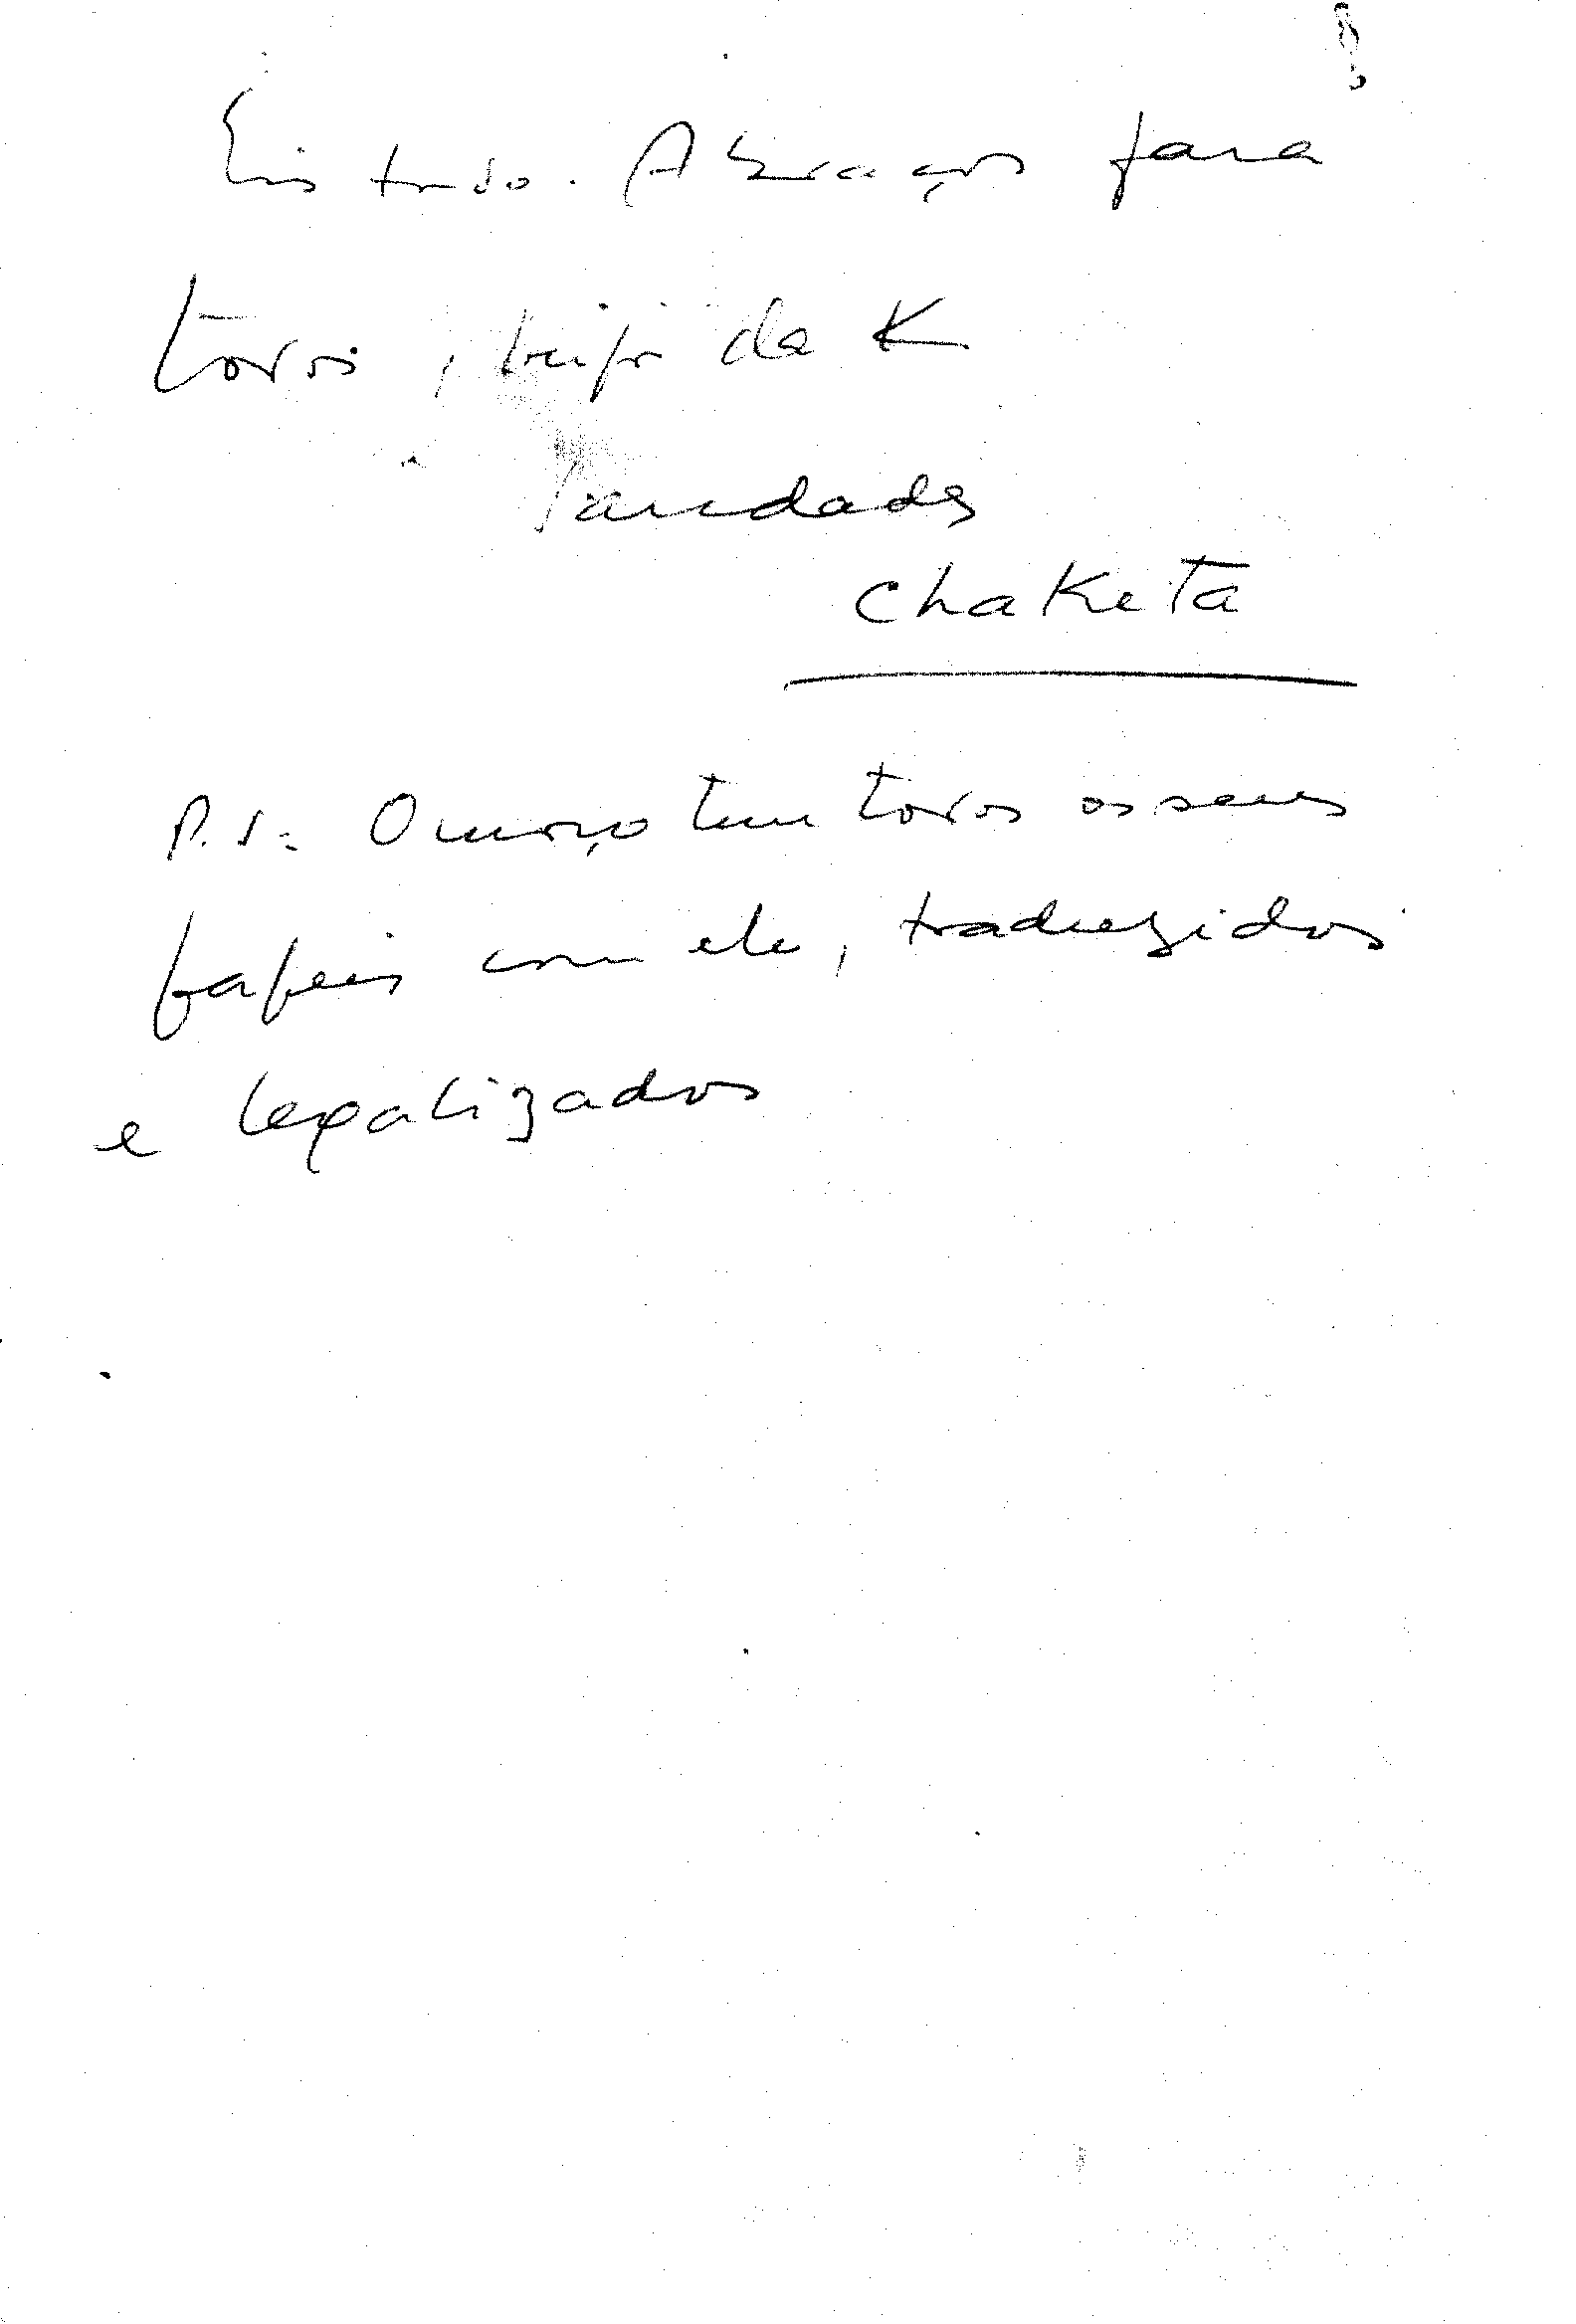 Eis tudo. Abraços para
todos, beijo da K
Saudades
Chaketa
P.S: O moço tem todos os seus
papeis com ele, traduzidos
e legalizados